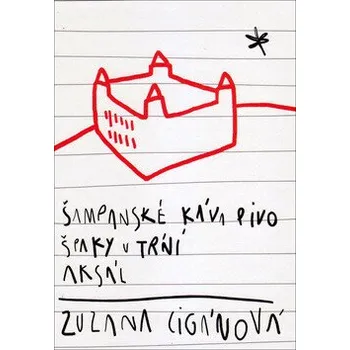 ŠAMPANSKÉ KÁVA PIVO
ŠPAKY V TŔNÍ
AKSÁL
ZUZANA CIGÁNOVÁ